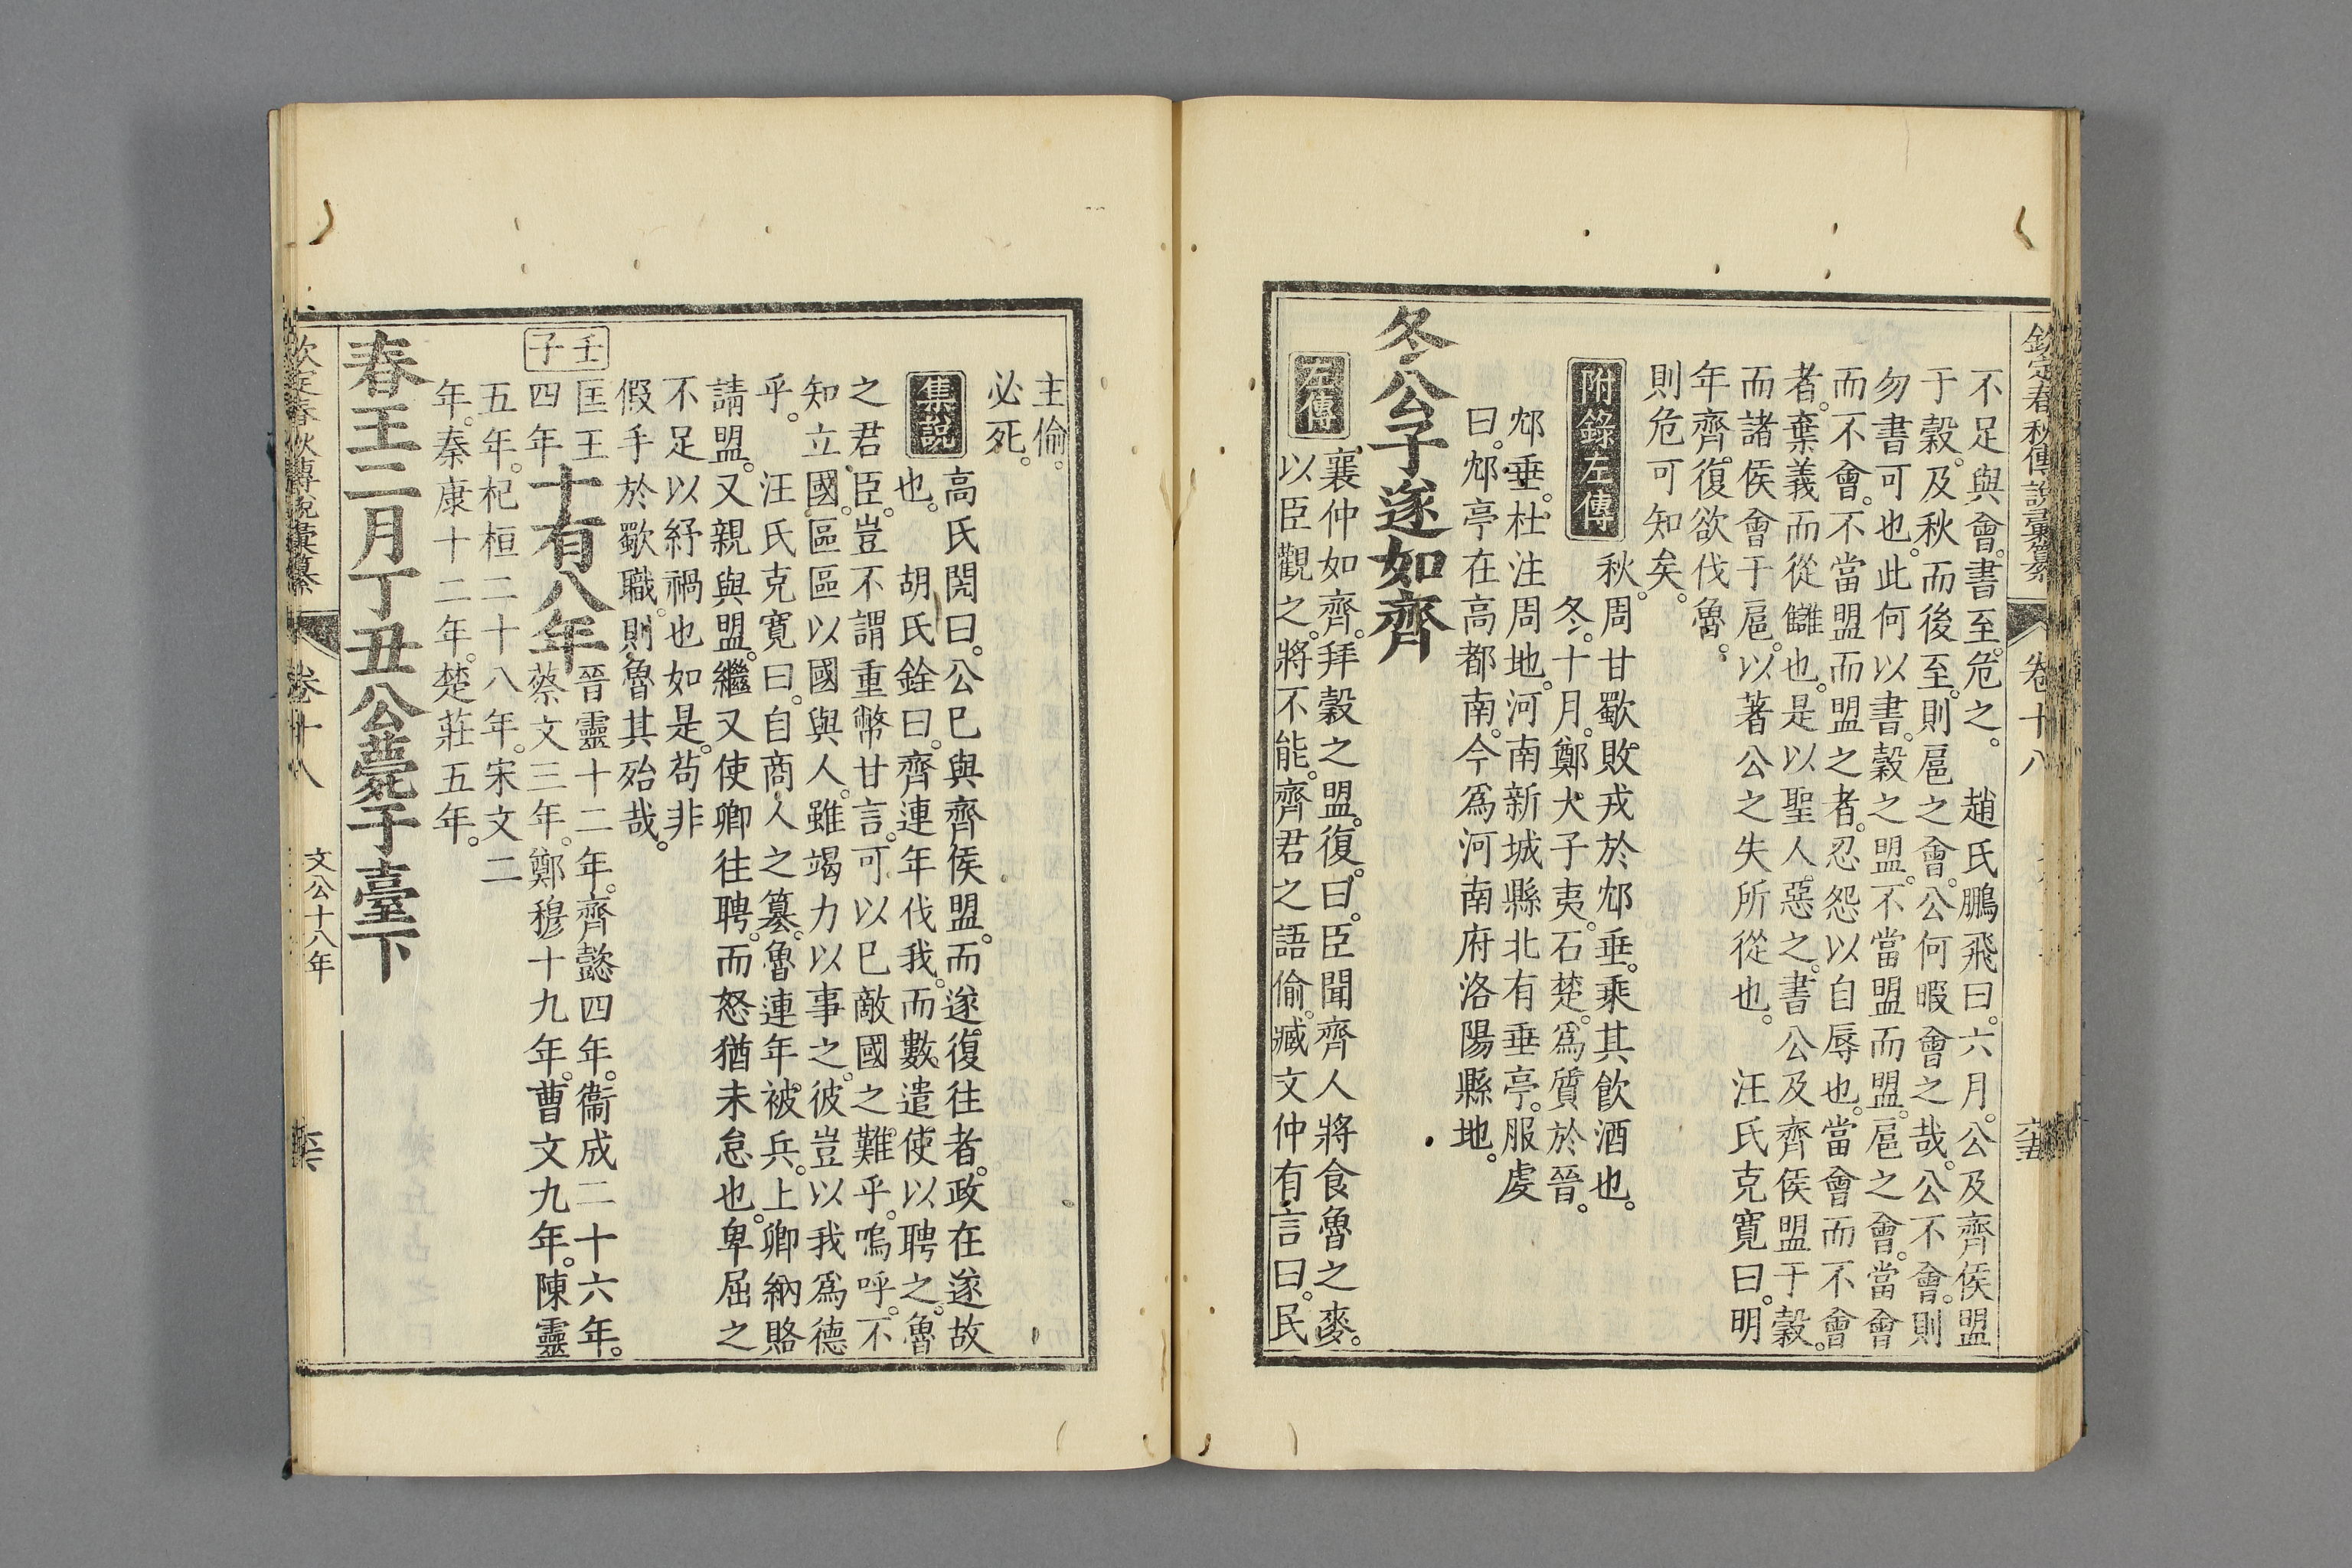 欽定春秋傳說彙纂 卷十八 六十五
不足與會書至危之。 趙氏鵬飛曰。六月。公及齊侯盟
于穀。及秋而後至。則扈之會。公何暇會之哉。公不會。則
勿書可也。此何以書。穀之盟。不當盟而盟。扈之會。當會
而不會。不當盟而盟之者。忍怨以自辱也。當會而不會
者。棄義而從讎也。是以聖人惡之。書公及齊侯盟于穀。
而諸侯會于扈。以著公之失所從也。 汪氏克寬曰。明
年齊。復欲伐魯。
則危可知矣。
附錄左傳
秋。周甘歜敗戎於邥垂。乘其飲酒也。
冬。十月。鄭大子夷。石楚。為質於晉。
邥垂。杜注周地。河南新城縣北有垂亭。服虔
曰。邥亭在高都南。今為河南府洛陽縣地。
冬公子遂如齊
左傳
襄仲如齊。拜穀之盟。復。曰。臣聞齊人將食魯之麥。
以臣觀之。將不能。齊君之語偷。臧文仲有言曰。民
主偷。
必死。
集說
高氏閌曰。公已與齊侯盟。而遂復往者。政在遂故
也。 胡氏銓曰。齊連年伐我。而數遣使以聘之。魯
之君臣。豈不謂重幣甘言。可以已敵國之難乎。嗚呼。不
知立國。區區以國與人。雖竭力以事之。彼豈以我為德
乎。 汪氏克寬曰。自商人之篡。魯連年被兵。上卿納賂
請盟。又親與盟。繼又使卿往聘。而怒猶未怠也。卑屈之
不足以紓禍也如是。苟非
假手於歜職。則魯其殆哉。
壬子
匡王四年
十有八年
晉靈十二年。齊懿四年。衛成二十六年。
蔡文三年。鄭穆十九年。曹文九年。陳靈
五年。杞桓二十八年。宋文二
年。秦康十二年。楚莊五年。
春王二月丁丑公薨于臺下
欽定春秋傳說彙纂 卷十八 文公十八年 六十六